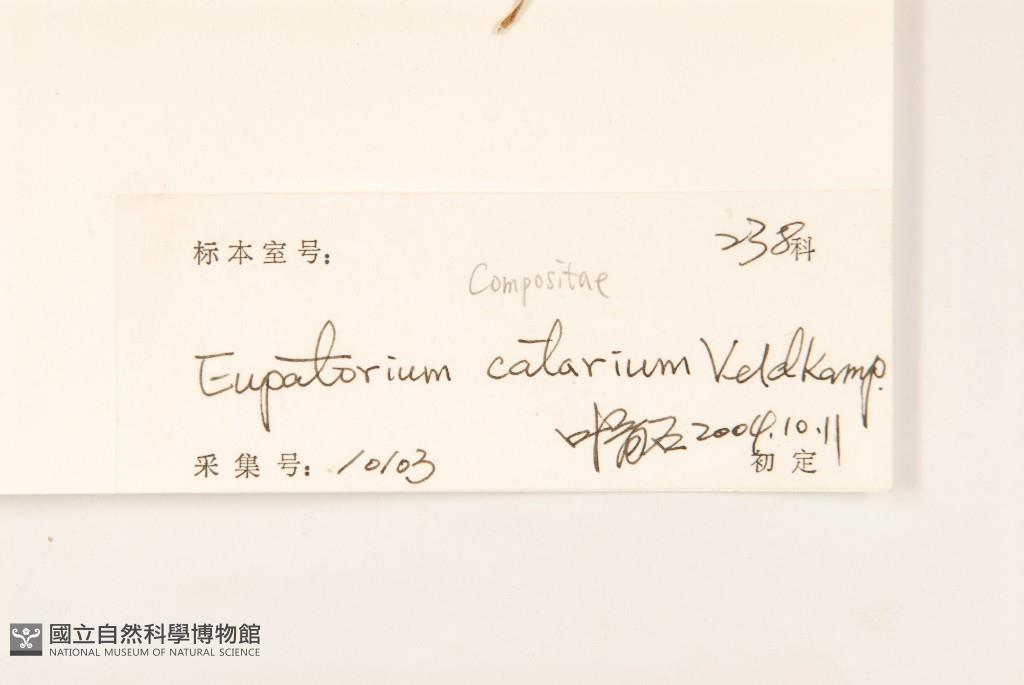 标本室号：
238科
Compositae
Eupatorium catarium Veldkamp.
叶育石 2004.10.11
采集号：10103
初定
國立自然科學博物館
NATIONAL MUSEUM OF NATURAL SCIENCE